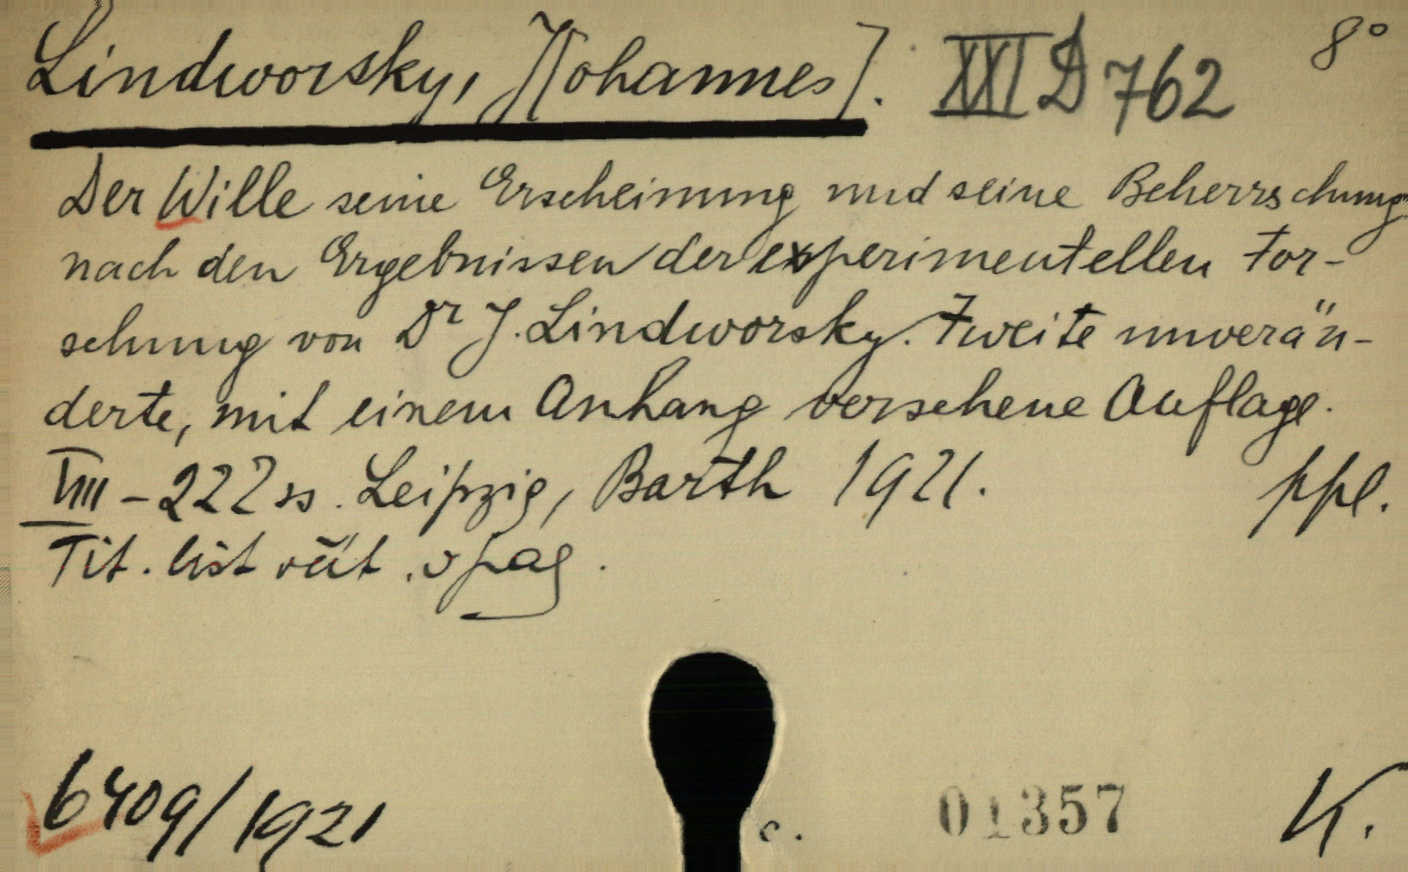 Lindworsky, J[ohannes]. XXI D 762 8°
Der Wille seine Erscheinung und seine Beherrschung
nach den Ergebnissen der experimentellen For-
schung von Dr J. Lindworsky. Zweite unverän-
derte, mit einem Anhang versehene Auflage.
VIII - 222 ss. Leipzig, Barth 1921. ppl.
Tit. list
6409/1921 c. 01357 K.